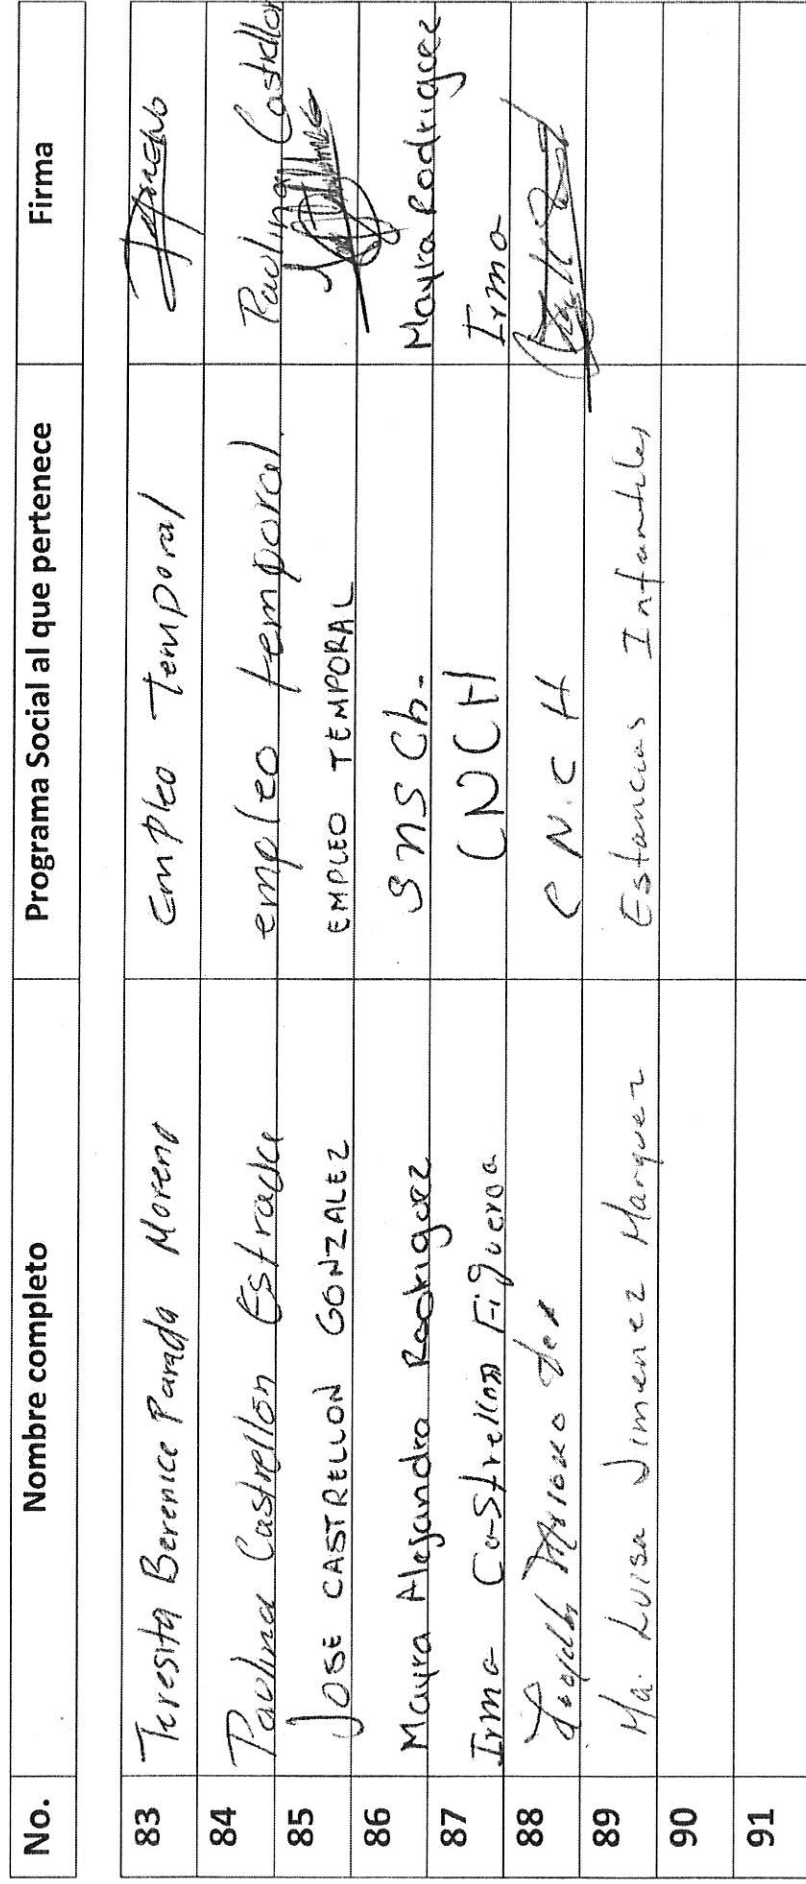 No. Nombre completo Programa Social al que pertenece Firma
83 Teresita Berenice Parada Moreno Empleo Temporal
84 Paulina Castrellón Estrada empleo temporal. Paulina Castrellon
85 JOSE CASTRELLON GONZALEZ EMPLEO TEMPORAL
86 Mayra Alejandra Rodriguez SNSCh. Mayra Rodriguez
87 Irma Castrellon Figueroa CNCH Irma
88 C N.C H
89 Ma. Luisa Jimenez Marquez Estancias Infantiles
90
91